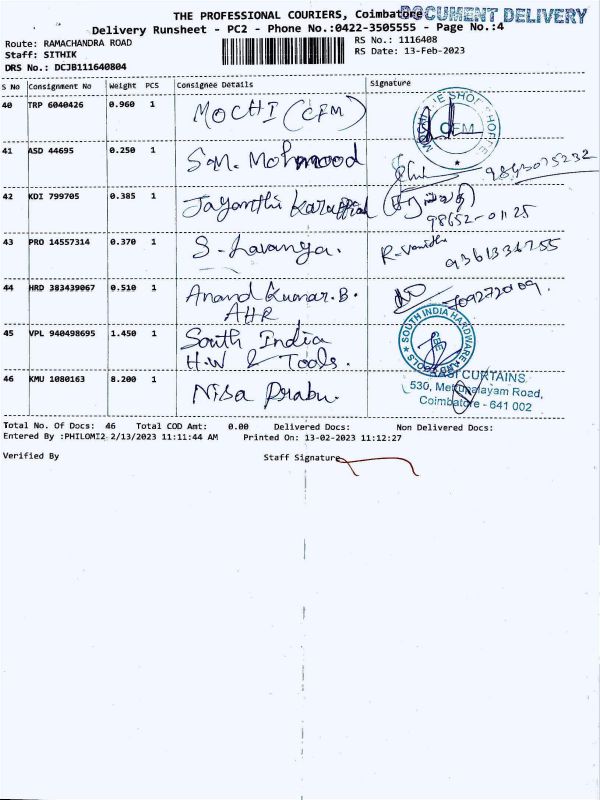 THE PROFESSIONAL COURIERS, Coimbatore
DOCUMENT DELIVERY
Delivery Runsheet - PC2 - Phone No.:0422-3505555 - Page No.:4
Route: RAMACHANDRA ROAD
RS No.: 1116408
Staff: SITHIK
RS Date: 13-Feb-2023
DRS No.: DCJB111640804
S No Consignment No Weight PCS Consignee Details Signature
40 TRP 6040426 0.960 1 MOCHI (CFM)
CFM
41 ASD 44695 0.250 1 S.M. Mohmood
9843075232
42 KDI 799705 0.385 1 Jayanthi Karuppiah
98652-01125
43 PRO 14557314 0.370 1 S. Lavanya. R. Vanitha 9361336755
44 HRD 383439067 0.510 1 Anand Kumar. B.
AHR
45 VPL 940498695 1.450 1 South India
H.W & Tools.
SOUTH INDIA HARDWARE AND TOOLS
CBE
46 KMU 1080163 8.200 1 Nisa Prabu.
CURTAINS
530, Mettupalayam Road,
Coimbatore - 641 002
Total No. Of Docs: 46 Total COD Amt: 0.00 Delivered Docs: Non Delivered Docs:
Entered By :PHILOMI2 2/13/2023 11:11:44 AM Printed On: 13-02-2023 11:12:27
Verified By Staff Signature